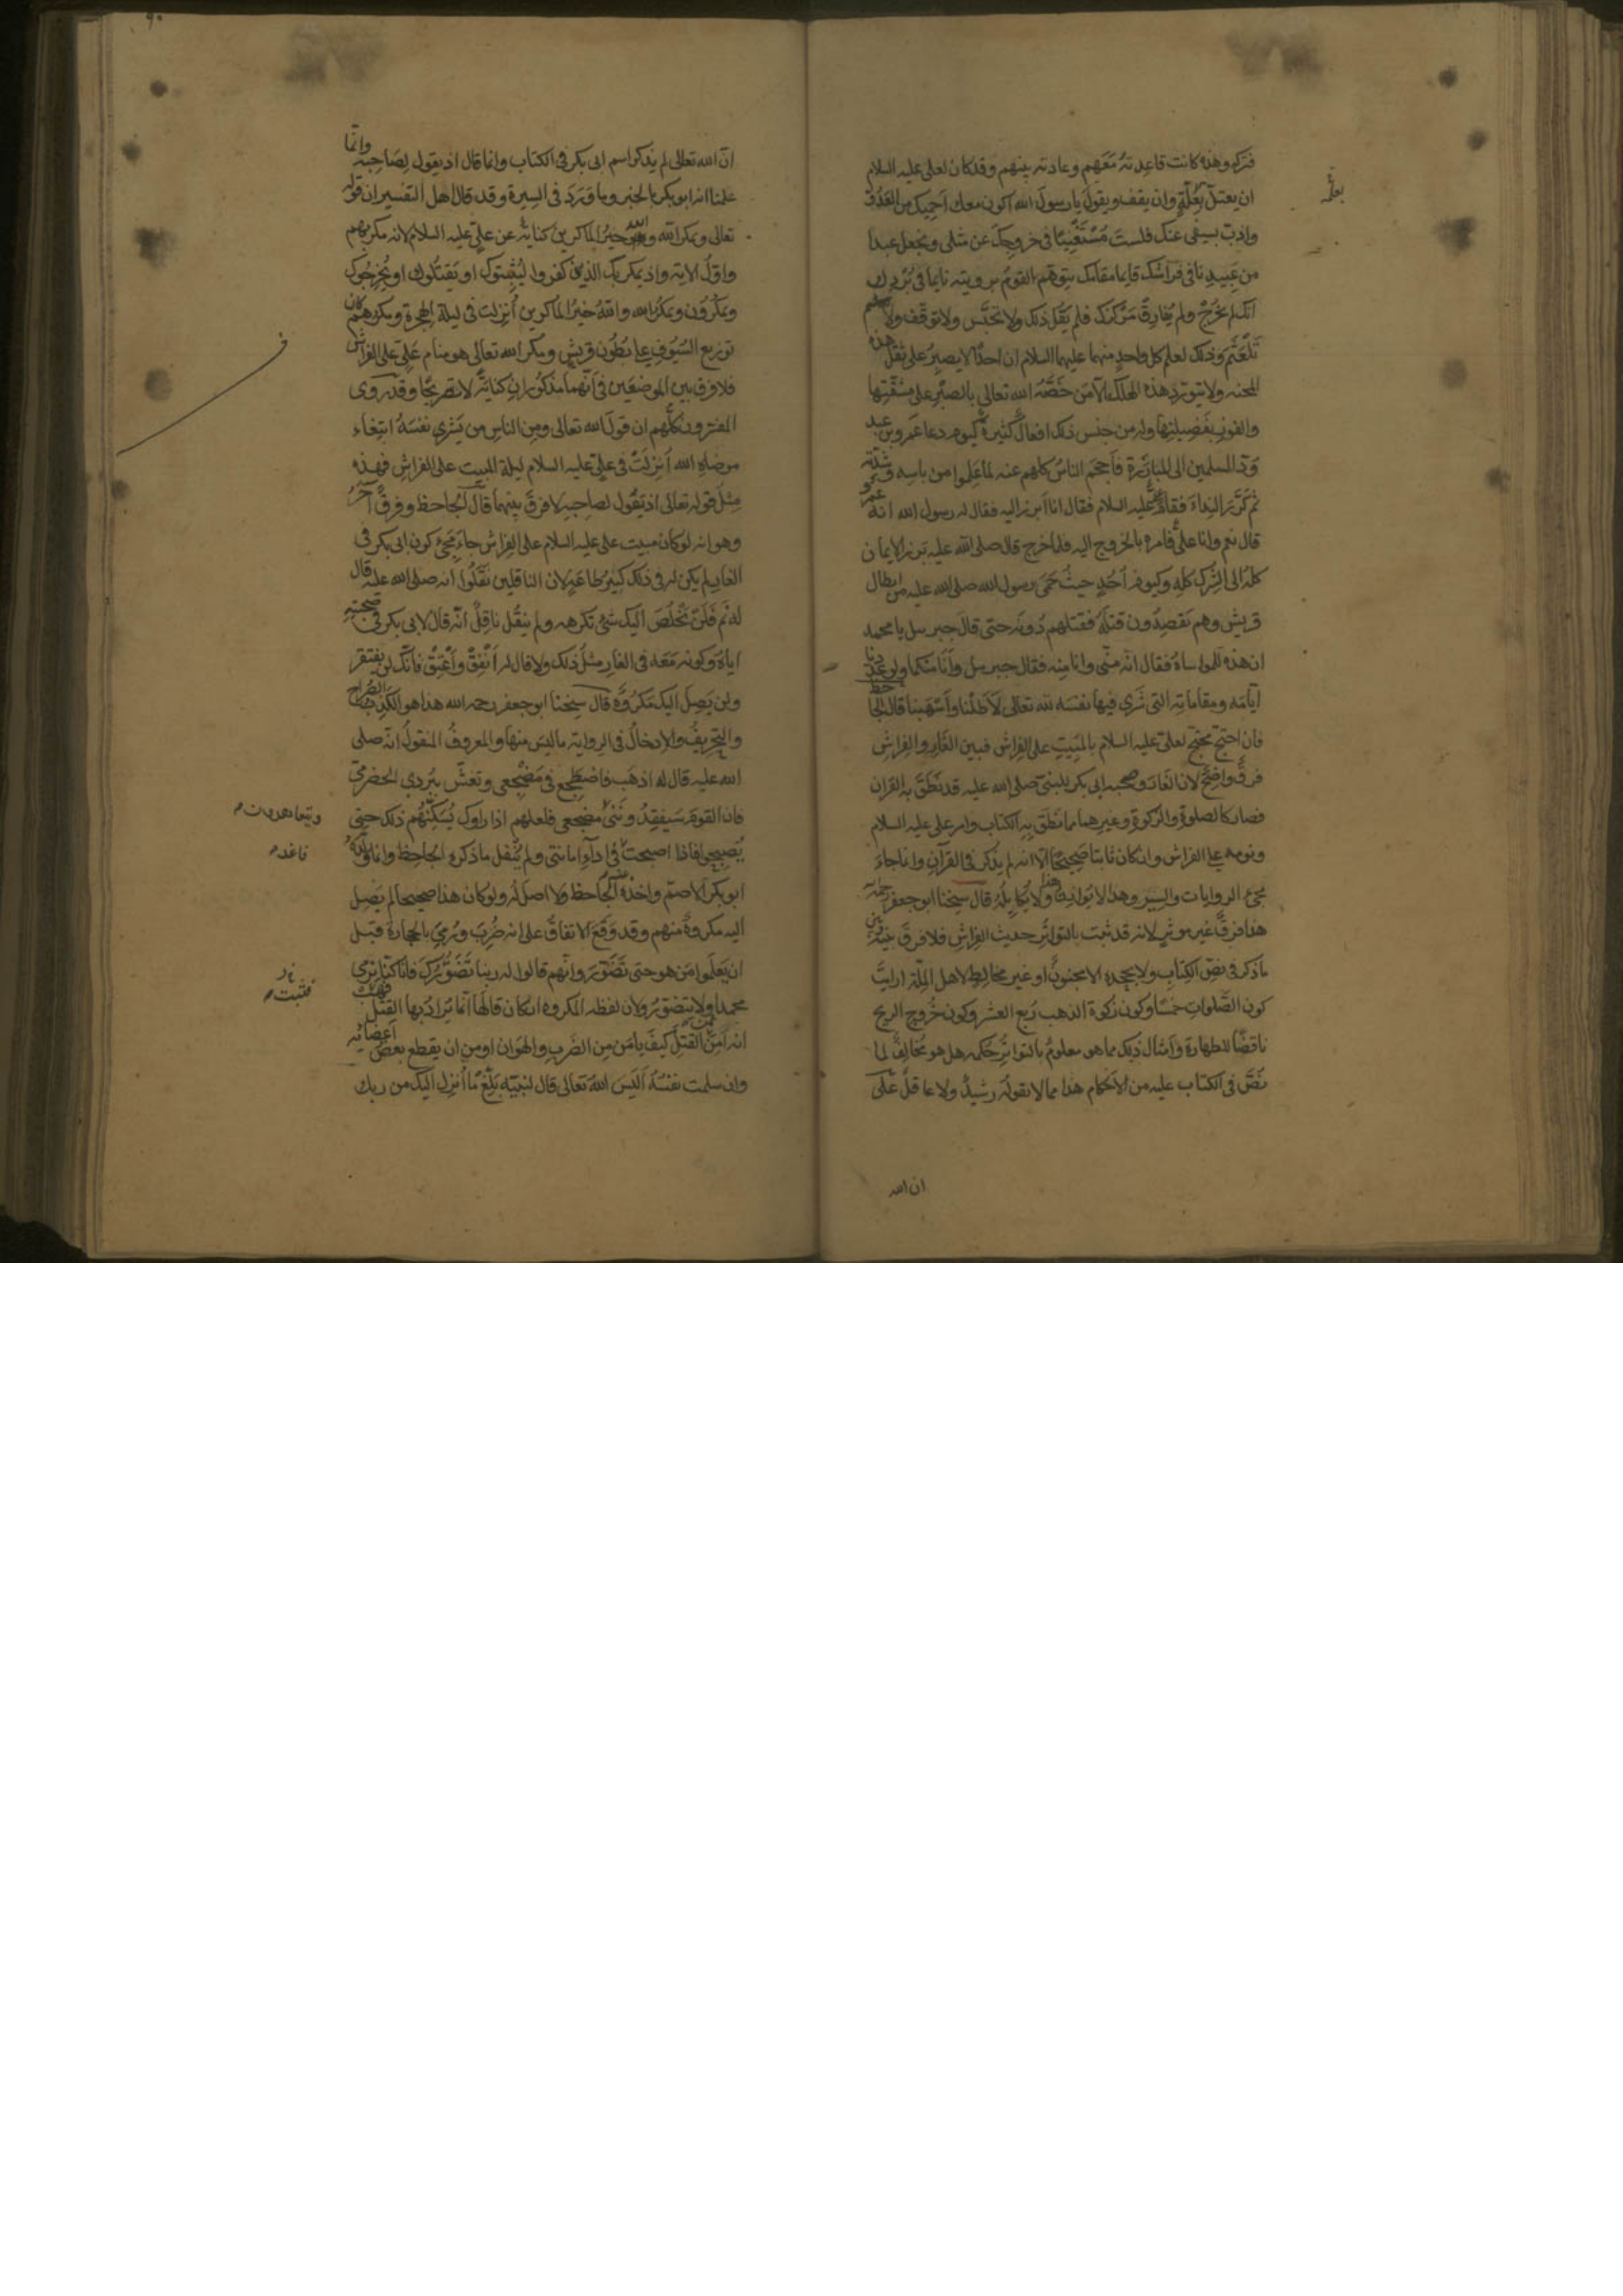 فتركه وهذه كانت قاعدته معهم وعادته بينهم وقد كان لعلى عليه السلام
ان يعتل بعلة وان يقف ويقول يا رسول الله اكون معك احميك من العدو
بعله
واذب بسيفى عنك فلست مستغنيا فى خروجك عن مثلى ونجعل عبدا
من عبيدنا فى فراشك قايما مقامك يتوهم القوم برويته نايما فى بردك
انك لم تخرج ولم تفارق مركزك فلم يقل ذلك ولا تحبس ولا توقف ولا
تلعثم وذلك لعلم كل واحد منهما عليهما السلام ان احدا لا يصبر على ثقل هذه
المحنه ولا يتورد هذه الهلكة الا من خصه الله تعالى بالصبر على مشقتها
والفوز بفضيلتها وله من جنس ذلك افعال كثيرة كيوم دعا عمرو بن عبد
ود المسلمين الى المبارزة فاحجم الناس كلهم عنه لما علموا من باسه وشدته
ثم كرر النداء فقام على عليه السلام فقال انا ابرز اليه فقال له رسول الله انه عمرو
قال نعم وانا على فامره بالخروج اليه فلما خرج قال صلى الله عليه برز الايمان
كله الى الشرك كله وكيوم احد حيث حمى رسول الله صلى الله عليه من ابطال
قريش وهم يقصدون قتله فقتلهم دونه حتى قال جبرييل يا محمد
ان هذه للمواساة فقال انه منى وانا منه فقال جبرييل وانا منكما ولو عددنا
ايامه ومقاماته التى شرى فيها نفسه لله تعالى لاطلنا واسهبنا قال الجاحظ
فان احتج محتج لعلى عليه السلام بالمبيت على الفراش فبين الغار والفراش
فرق واضح لان الغار وصحبه ابى بكر للنبى صلى الله عليه قد نطق به القران
فصار كالصلوة والزكوة وغيرهما مما نطق به الكتاب وامر على عليه السلام
ونومه على الفراش وان كان ثابتا صحيحا الا انه لم يذكر فى القرآن وانما جاء
مجئ الروايات والسير وهذا لا يوازن هذا ولا يكايله قال شيخنا ابو جعفر رحمه الله
هذا فرق غير موثر لانه قد ثبت بالتواتر حديث الفراش فلا فرق بينه وبين
ما ذكر فى نص الكتاب ولا يجحده الا مجنون او غير مخالط لاهل الملة ارايت
كون الصلوات خمسا وكون زكوة الذهب ربع العشر وكون خروج الريح
ناقضا للطهارة وامثال ذلك مما هو معلوم بالتواتر حكمه هل هو مخالف لما
نص فى الكتاب عليه من الاحكام هذا مما لا يقوله رشيد ولا عاقل على
ان الله
ان الله تعالى لم يذكر اسم ابى بكر فى الكتاب وانما قال اذ يقول لصاحبه وانما
علمنا انه ابو بكر بالخبر وما ورد فى السيرة وقد قال اهل التفسير ان قوله
تعالى ويمكر الله والله خير الماكرين كناية عن على عليه السلام لانه مكر بهم
واول الاية واذ يمكر بك الذين كفروا ليثبتوك او يقتلوك او يخرجوك
ويمكرون ويمكر الله والله خير الماكرين انزلت فى ليلة الهجرة ومكرهم كان
توزيع السيوف على بطون قريش ومكر الله تعالى هو منام على على الفراش
فلا فرق بين الموضعين فى انهما مذكوران كناية لا تصريحا وقد روى
المفسرون كلهم ان قول الله تعالى ومن الناس من يشرى نفسه ابتغاء
مرضاه الله انزلت فى على عليه السلام ليلة المبيت على الفراش فهذه
مثل قوله تعالى اذ يقول لصاحبه لا فرق بينهما قال الجاحظ وفرق آخر
وهو انه لو كان مبيت على عليه السلام على الفراش جاء مجئ كون ابى بكر فى
الغار لم يكن له فى ذلك كبير طاعة لان الناقلين نقلوا انه صلى الله عليه قال
له نم فلن تخلص اليك شئ تكرهه ولم ينقل ناقل انه قال لابى بكر فى صحبته
اياه وكونه معه فى الغار مثل ذلك ولا قال له انفق واعتق فانك لن يفتقر
ولن يصل اليك مكروه قال شيخنا ابو جعفر رحمه الله هذا هو الكذب الصراح
والتحريف والادخال فى الرواية ما ليس منها والمعروف المنقول انه صلى
الله عليه قال له اذهب فاضطجع فى مضجعى وتغش ببردى الحضرمى
فان القوم سيفقدوننى مضجعى فلعلهم اذا راوك يسكنهم ذلك حتى
يصبحوا فاذا اصبحت فى اداء امانتى ولم ينقل ما ذكره الجاحظ وانما ولده
فاغد
ابو بكر الاصم واخذه عنه الجاحظ ولا اصل له ولو كان هذا صحيحا لم يصل
اليه مكروه منهم وقد وقع الاتفاق على انه ضرب ورمى بالحجارة قبل
ان يعلموا من هو حتى تضور وانهم قالوا له رينا تضورك فانا كنا نرمى
محمدا ولا يتضور ولان لفظه المكروه ان كان قالها انما يراد بها القتل فهب
انه امن القتل كيف يامن من الضرب والهوان او من ان يقطع بعض اعضائه
وان سلمت نفسه اليس الله تعالى قال لنبيه بلغ ما انزل اليك من ربك